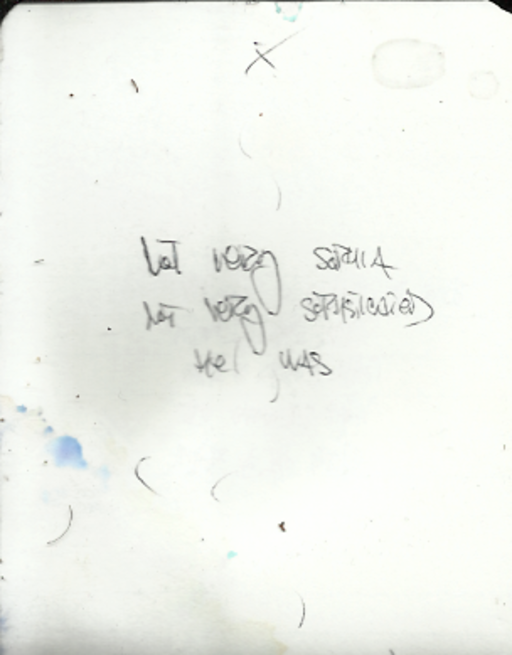 Not very
not very sophisticated
He was